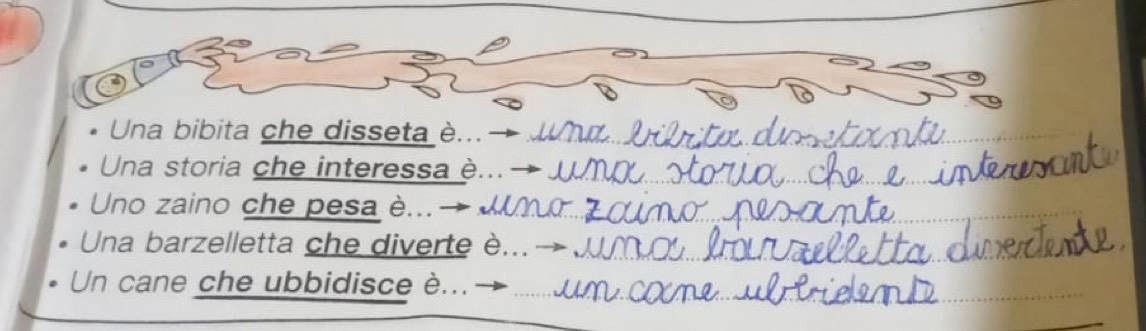 • Una bibita che disseta è... → una bibita dissetante
• Una storia che interessa è... → una storia che è interesante
• Uno zaino che pesa è... → uno zaino pesante
• Una barzelletta che diverte è... → una barzelletta divertente.
• Un cane che ubbidisce è... → un cane ubbidente